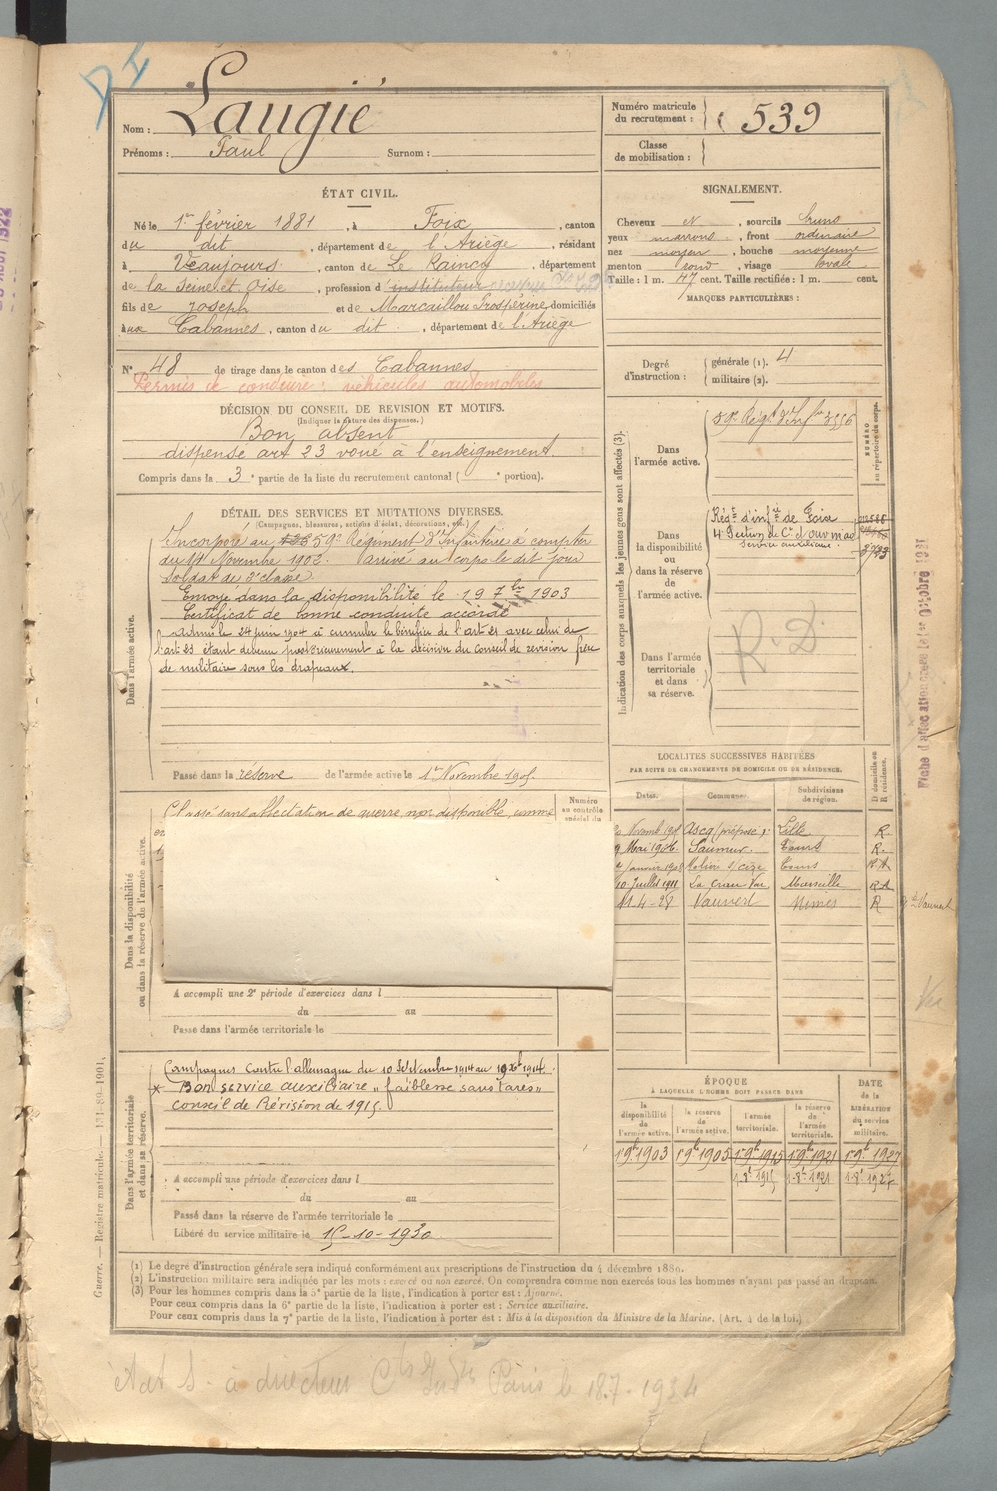 Laugié
Nom :
Prénoms : Paul Surnom :
Numéro matricule du recrutement : 539
Classe de mobilisation :
ÉTAT CIVIL.
Né le 1er février 1881, à Foix, canton
du dit, département de l'Ariège, résidant
à Vaujours, canton de Le Raincy, département
de la Seine et Oise, profession d'instituteur
fils de Joseph et de Marcaillou Prospérine domiciliés
aux Cabannes, canton du dit, département de l'Ariège
N° 48 de tirage dans le canton des Cabannes
Permis de conduire : véhicules automobiles
SIGNALEMENT.
Cheveux N, sourcils bruns
yeux marrons, front ordinaire
nez moyen, bouche moyenne
menton rond, visage ovale
Taille : 1 m. 47 cent. Taille rectifiée : 1 m. cent.
MARQUES PARTICULIÈRES :
Degré d'instruction : générale (1). 4
militaire (2).
DÉCISION DU CONSEIL DE REVISION ET MOTIFS.
(Indiquer la nature des dispenses.)
Bon absent
dispensé art 23 voué à l'enseignement
Compris dans la 3e partie de la liste du recrutement cantonal ( e portion).
DÉTAIL DES SERVICES ET MUTATIONS DIVERSES.
(Campagnes, blessures, actions d'éclat, décorations, etc.)
Dans l'armée active.
Incorporé au 59e Régiment d'Infanterie à compter
du 14 Novembre 1902. Arrivé au corps le dit jour
soldat de 2e classe.
Envoyé dans la disponibilité le 19 7bre 1903
Certificat de bonne conduite accordé
Admis le 24 juin 1904 à cumuler le bénéfice de l'art 21 avec celui de
l'art 23 étant devenu postérieurement à la décision du Conseil de revision frère
de militaire sous les drapeaux.
Passé dans la réserve de l'armée active le 1er Novembre 1905.
Indication des corps auxquels les jeunes gens sont affectés (3).
NUMÉRO au répertoire du corps.
Dans l'armée active.
59e Régt d'Infie 3556
Dans la disponibilité ou dans la réserve de l'armée active.
Régt d'infie de Foix
4 Section de Cis d'ouv mad
service auxiliaire.
Dans l'armée territoriale et dans sa réserve.
R.D.
Fiche d'affectation créée le 1er Octobre 1931
Dans la disponibilité ou dans la réserve de l'armée active.
Classé sans affectation de guerre, non disponible, comme
Numéro au contrôle spécial du
A accompli une 2e période d'exercices dans l
du au
Passé dans l'armée territoriale le
LOCALITÉS SUCCESSIVES HABITÉES
PAR SUITE DE CHANGEMENTS DE DOMICILE OU DE RÉSIDENCE.
Dates. Communes. Subdivisions de région. D domicile ou R résidence.
Ascq (préposé) Lille R
9 Mai 1906 Saumur. Tours R.
2 Janvier 1908 Tours R A
10 Juillet 1911 La Crau Var Marseille R A
11-4-28 Vauvert Nîmes R
Dans l'armée territoriale et dans sa réserve.
Campagnes Contre l'allemagne du 10 Septembre 1914 au 1914.
x Bon service auxiliaire "faiblesse sans tares"
Conseil de Révision de 1915.
A accompli une période d'exercices dans l
du au
Passé dans la réserve de l'armée territoriale le
Libéré du service militaire le 15-10-1930
ÉPOQUE
À LAQUELLE L'HOMME DOIT PASSER DANS
la disponibilité de l'armée active. la réserve de l'armée active. l'armée territoriale. la réserve de l'armée territoriale. DATE de la LIBÉRATION du service militaire.
1 9b 1903 1 9b 1905 1 9b 1915 1 9b 1921 1 9b 1927
1-8b 1915 1-8b 1921 1-8b 1927
(1) Le degré d'instruction générale sera indiqué conformément aux prescriptions de l'instruction du 4 décembre 1889.
(2) L'instruction militaire sera indiquée par les mots : exercé ou non exercé. On comprendra comme non exercés tous les hommes n'ayant pas passé au drapeau.
(3) Pour les hommes compris dans la 5e partie de la liste, l'indication à porter est : Ajourné.
Pour ceux compris dans la 6e partie de la liste, l'indication à porter est : Service auxiliaire.
Pour ceux compris dans la 7e partie de la liste, l'indication à porter est : Mis à la disposition du Ministre de la Marine. (Art. 4 de la loi.)
Guerre. — Registre matricule. — 131-89-1901.
à directeur Paris le 18.7.1934